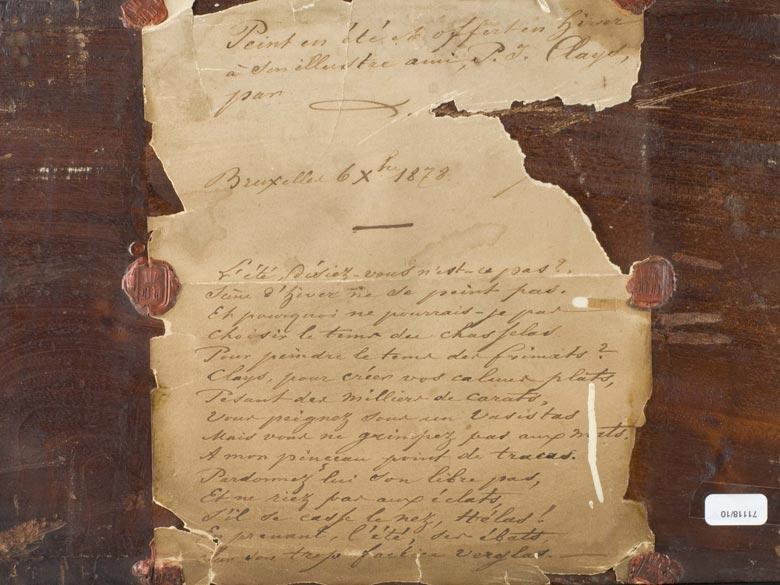 Peint en été et offert en hiver
à son illustre ami, P. J. Clays,
par
Bruxelles 6 Xbr 1878.
L'été, disiez-vous n'est-ce pas?
Scène d'hiver ne se peint pas.
Et pourquoi ne pourrais-je pas
Choisir le tems du chasselas
Pour peindre le tems des frimats?
Clays, pour créer vos calmes plats,
Pesant des milliers de carats,
Vous peignez sous un vasistas
Mais vous ne grimpez pas aux mats.
A mon pinceau point de tracas.
Pardonnez lui son libre pas,
Et ne riez pas aux éclats
S'il se casse le nez, Hélas!
En prenant, l'été, ses ébats
son trop factice verglas.
71118/10